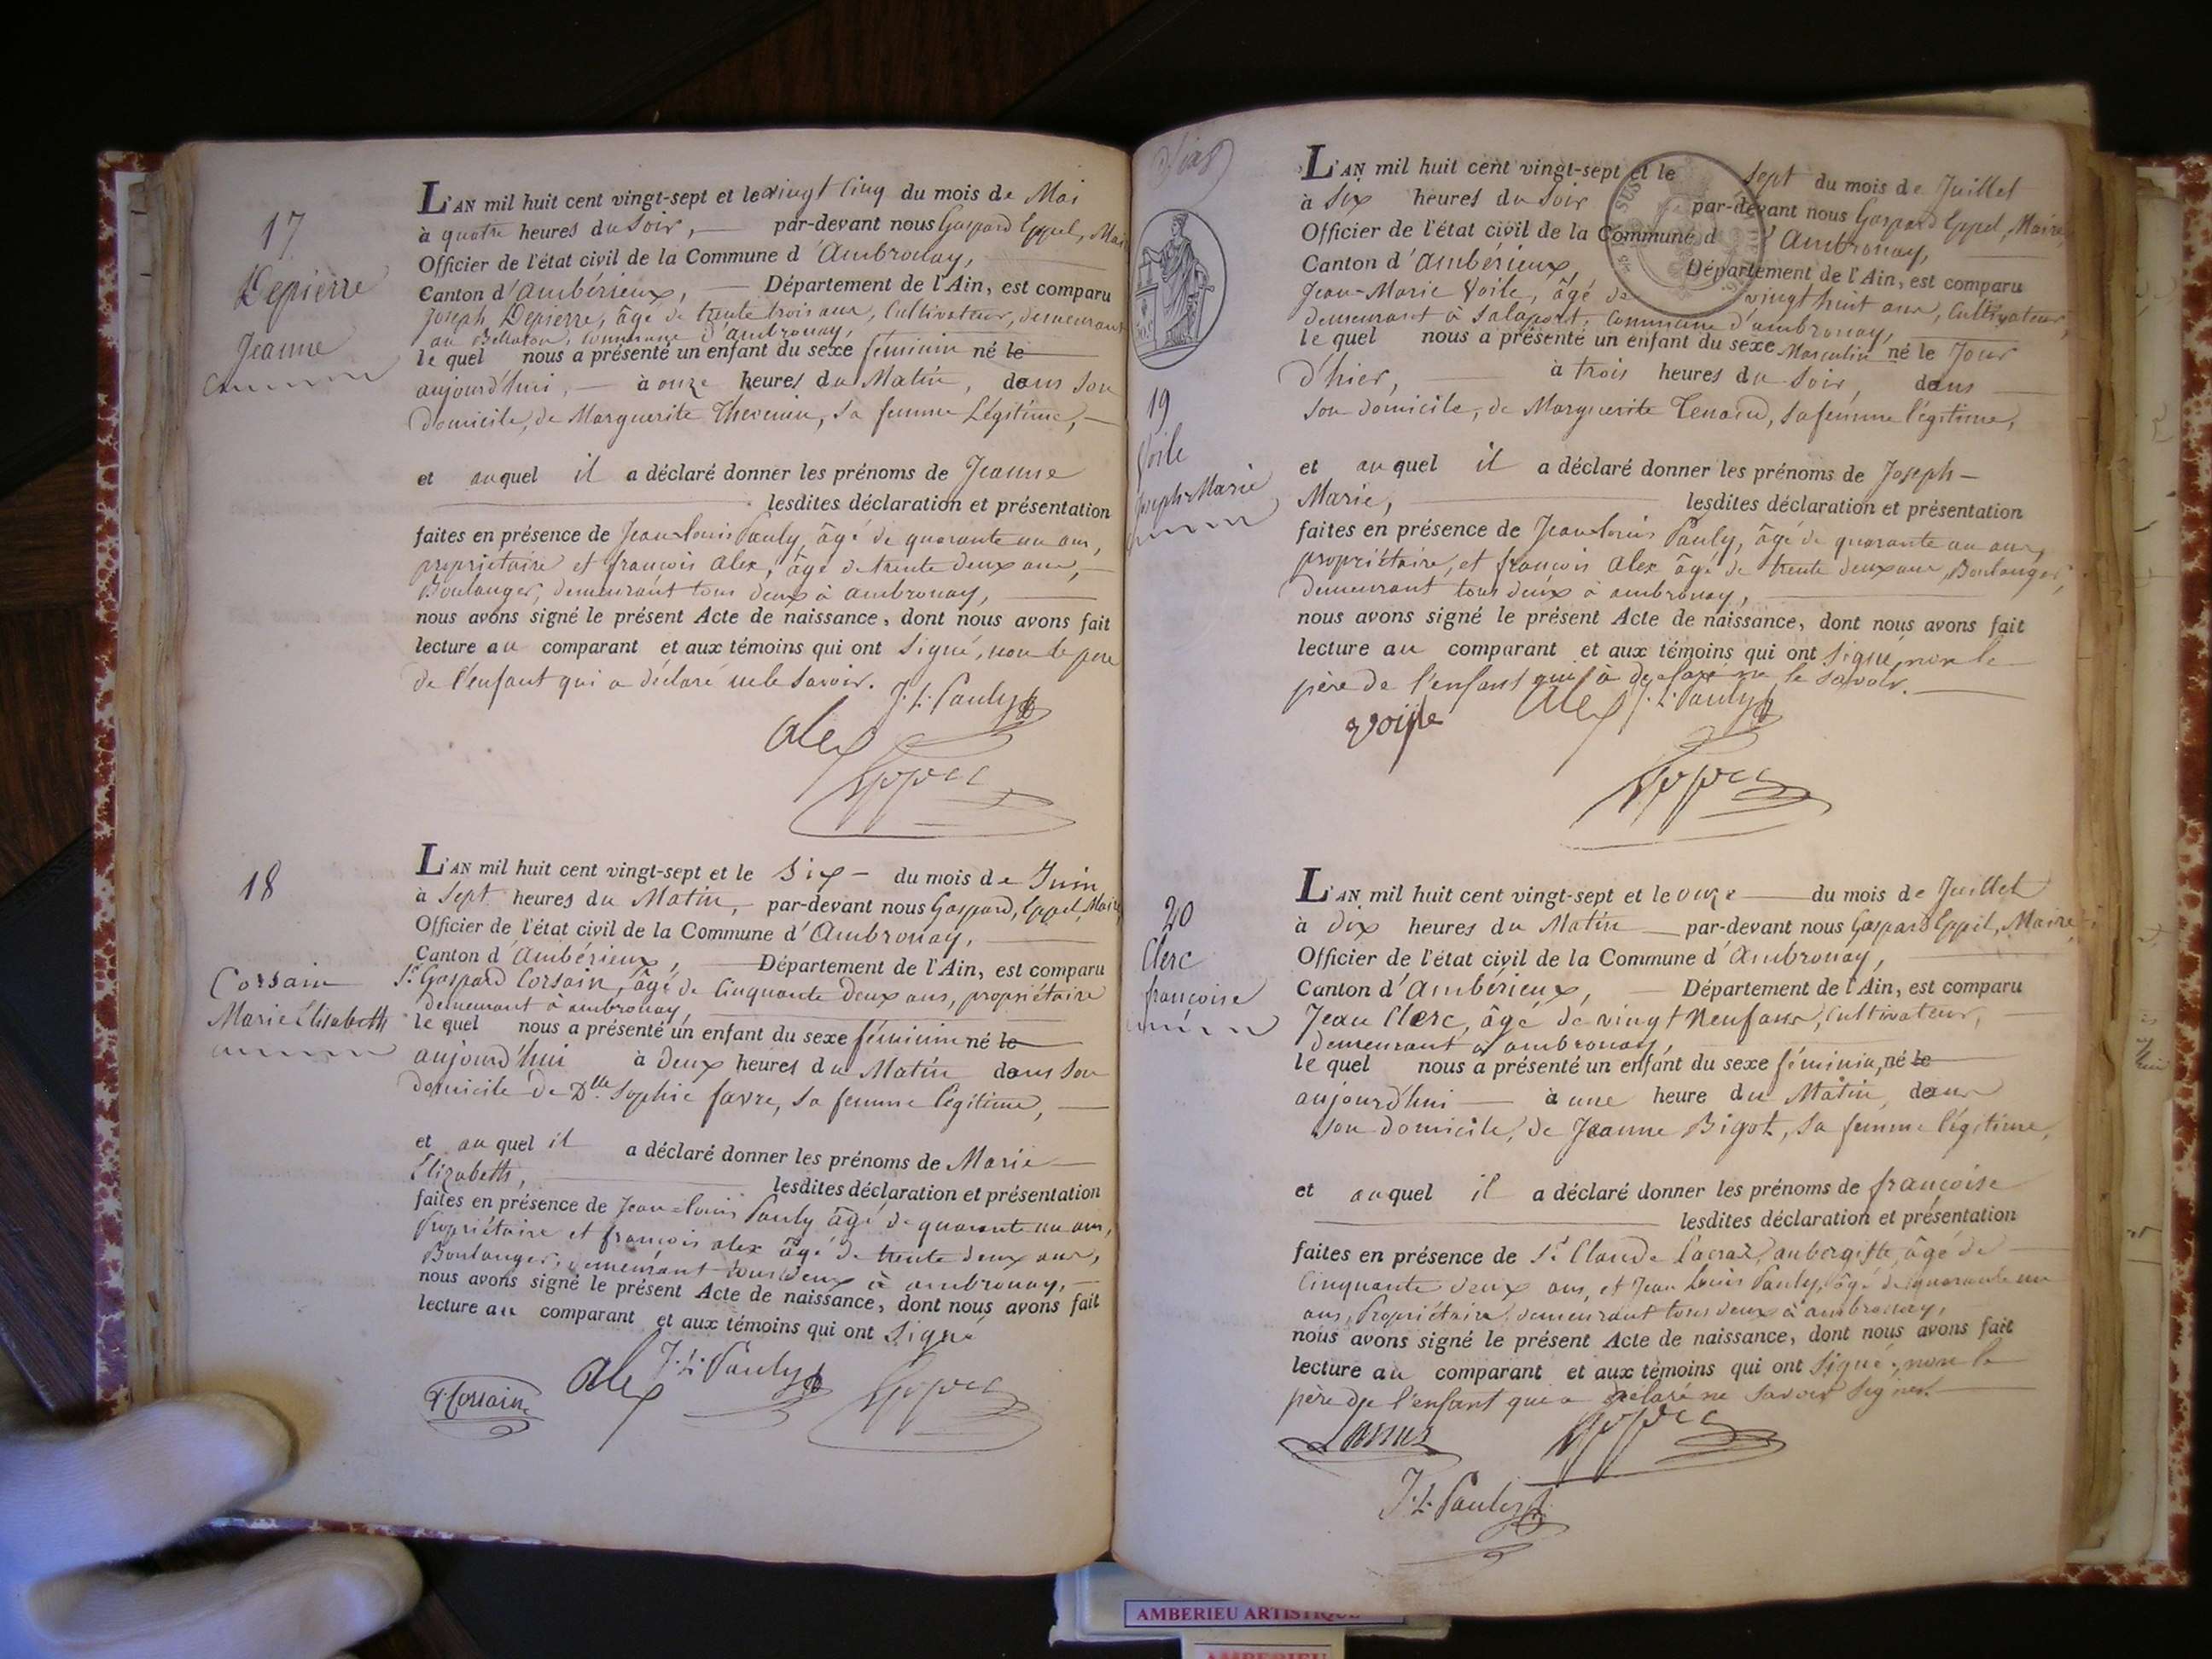 17
Depierre
Jeanne
L'AN mil huit cent vingt-sept et le vingt cinq du mois de Mai
à quatre heures du Soir, par-devant nous Gaspard Eppel, Mai
Officier de l'état civil de la Commune d'Ambronay,
Canton d'Ambérieux, Département de l'Ain, est comparu
Joseph Depierre, âgé de trente trois ans, Cultivateur, demeurant
au commune d'ambronay,
le quel nous a présenté un enfant du sexe féminin né le
aujourd'hui, à onze heures du Matin, dans son
domicile, de Marguerite Thevenin, sa femme Légitime,
et auquel il a déclaré donner les prénoms de Jeanne
lesdites déclaration et présentation
faites en présence de Jean-Louis Pauly, âgé de quarante un ans,
propriétaire et françois alex, âgé de trente deux ans,
Boulanger, demeurant tous deux à ambronay,
nous avons signé le présent Acte de naissance, dont nous avons fait
lecture au comparant et aux témoins qui ont Signé, non le pere
de l'enfant qui a déclaré ne le savoir. J. L. Pauly
alex
Eppel
18
Corsain
Marie Elisabeth
L'AN mil huit cent vingt-sept et le Six du mois de Juin
à Sept heures du Matin, par-devant nous Gaspard, Eppel, Maire
Officier de l'état civil de la Commune d'Ambronay,
Canton d'Ambérieux, Département de l'Ain, est comparu
Sr. Gaspard Corsain, âgé de Cinquante deux ans, propriétaire
demeurant à ambronay,
le quel nous a présenté un enfant du sexe féminin né le
aujourd'hui à Deux heures du Matin dans son
domicile de Dlle Sophie favre, sa femme légitime,
et auquel il a déclaré donner les prénoms de Marie
Elizabeth, lesdites déclaration et présentation
faites en présence de Jean-Louis Pauly âgé de quarante un ans,
Propriétaire et françois alex âgé de trente deux ans,
Boulanger, demeurant tous deux à ambronay,
nous avons signé le présent Acte de naissance, dont nous avons fait
lecture au comparant et aux témoins qui ont Signé
G. Corsain alex J. L. Pauly Eppel
19
Voile
Joseph-Marie
L'AN mil huit cent vingt-sept et le Sept du mois de Juillet
à Six heures du Soir par-devant nous Gaspard Eppel, Maire,
Officier de l'état civil de la Commune d'Ambronay,
Canton d'Ambérieux, Département de l'Ain, est comparu
Jean-Marie Voile, âgé de vingt huit ans, Cultivateur,
demeurant à Salaport, Commune d'ambronay,
le quel nous a présenté un enfant du sexe Masculin né le Jour
d'hier, à trois heures du Soir, dans
son domicile, de Marguerite Tenand, sa femme légitime,
et auquel il a déclaré donner les prénoms de Joseph-
Marie, lesdites déclaration et présentation
faites en présence de Jean-Louis Pauly, âgé de quarante un ans,
propriétaire, et françois alex âgé de trente deux ans, Boulanger,
demeurant tous deux à ambronay,
nous avons signé le présent Acte de naissance, dont nous avons fait
lecture au comparant et aux témoins qui ont Signé, non le
père de l'enfant qui a déclaré ne le savoir.
alex J. L. Pauly
Eppel
20
Clerc
françoise
L'AN mil huit cent vingt-sept et le onze du mois de Juillet
à Dix heures du Matin par-devant nous Gaspard Eppel, Maire,
Officier de l'état civil de la Commune d'Ambronay,
Canton d'Ambérieux, Département de l'Ain, est comparu
Jean Clerc, âgé de vingt Neuf ans, Cultivateur,
demeurant à ambronay,
le quel nous a présenté un enfant du sexe féminin, né le
aujourd'hui à une heure du Matin, dans
son domicile, de Jeanne Bigot, sa femme légitime,
et auquel il a déclaré donner les prénoms de françoise
lesdites déclaration et présentation
faites en présence de Sr. Claude aubergiste, âgé de
Cinquante deux ans, et Jean Louis Pauly, âgé de quarante un
ans, Propriétaire, demeurant tous deux à ambronay,
nous avons signé le présent Acte de naissance, dont nous avons fait
lecture au comparant et aux témoins qui ont Signé, non le
père de l'enfant qui a déclaré ne savoir signer.
Eppel
J. L. Pauly
AMBERIEU ARTISTIQUE
AMBERIEU